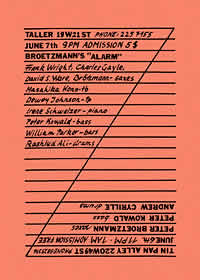 TALLER 19W21ST PHONE: 225 7455
JUNE 7th 9PM ADMISSION 5$
BROETZMANN'S "ALARM"
Frank Wright, Charles Gayle,
David S. Ware, Brötzmann-saxes
Masahiko Kono-tb
Dewey Johnson-tp
Irene Schweizer-piano
Peter Kowald-bass
William Parker-bass
Rashied Ali-drums
TIN PAN ALLEY 220W49ST
JUNE 6th 11PM - 7AM ADMISSION FREE
PETER BROETZMANN saxes
PETER KOWALD bass
ANDREW CYRILLE drums